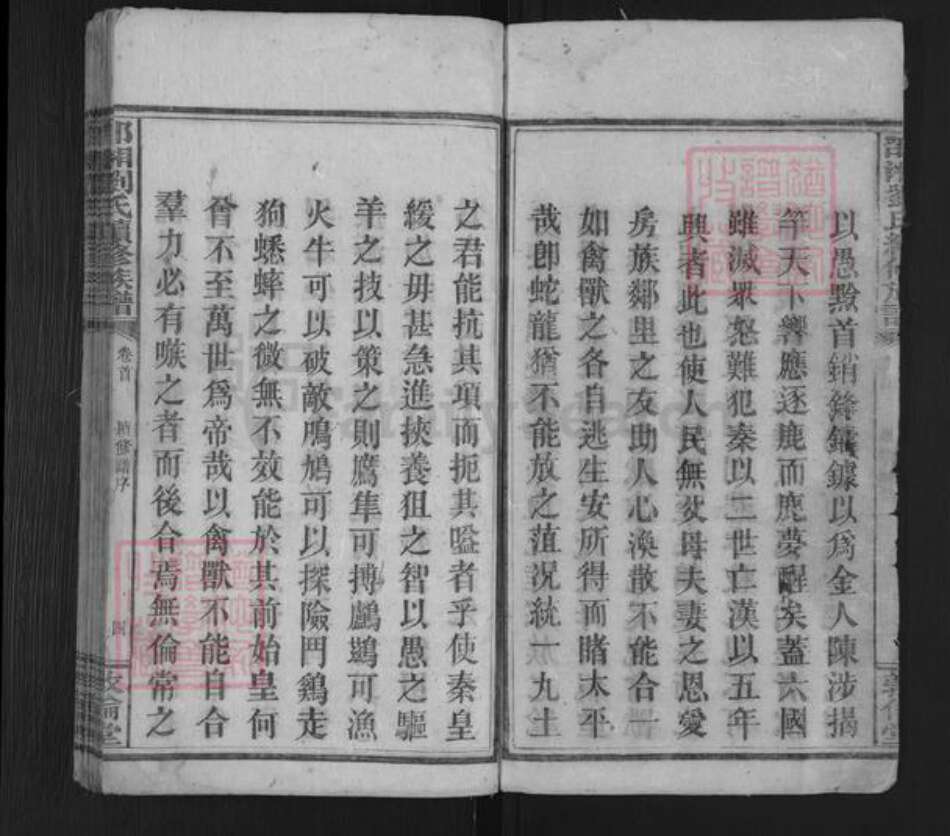 以愚黔首銷鋒鑄鐻以爲金人陳涉揭
竿天下響應逐鹿而鹿夢醒矣蓋六國
雖滅眾怒難犯秦以二世亡漢以五年
興者此也使人民無父母夫妻之恩愛
房族鄰里之友助人心渙散不能合一
如禽獸之各自逃生安所得而睹太平
哉卽蛇龍猶不能放之菹況統一九土
之君能抗其項而扼其嗌者乎使秦皇
緩之毋甚急進挾養狙之智以愚之驅
羊之技以策之則鷹隼可搏鸕鷀可漁
火牛可以破敵鴆可以探險鬥鷄走
狗蟋蟀之微無不效能於其前始皇何
曾不至萬世爲帝哉以禽獸不能自合
羣力必有嗾之者而後合焉無倫常之
邵湘劉氏續修族譜
卷首
修譜序
四
敦倫堂